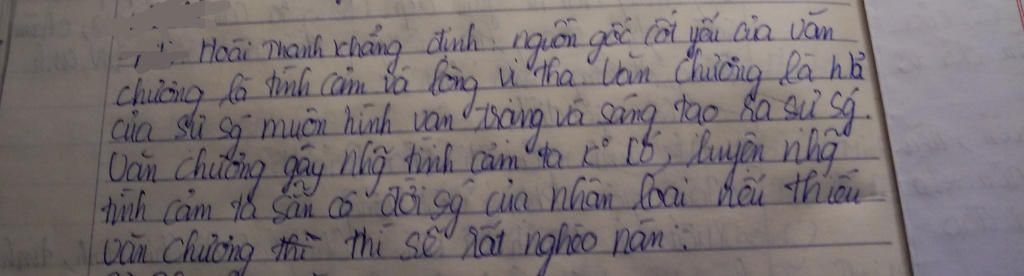 Hoài Thanh khẳng định: nguồn gốc cốt yếu của văn
chương là tình cảm và lòng vị tha Văn chương là h/ả
của sự sg muôn hình vạn trạng và sáng tạo ra sự sg.
Văn chương gây nhg tình cảm ta k° có, luyện nhg
tình cảm ta sẵn có đời sg của nhân loại nếu thiếu
văn chương thì thì sẽ rất nghèo nàn.